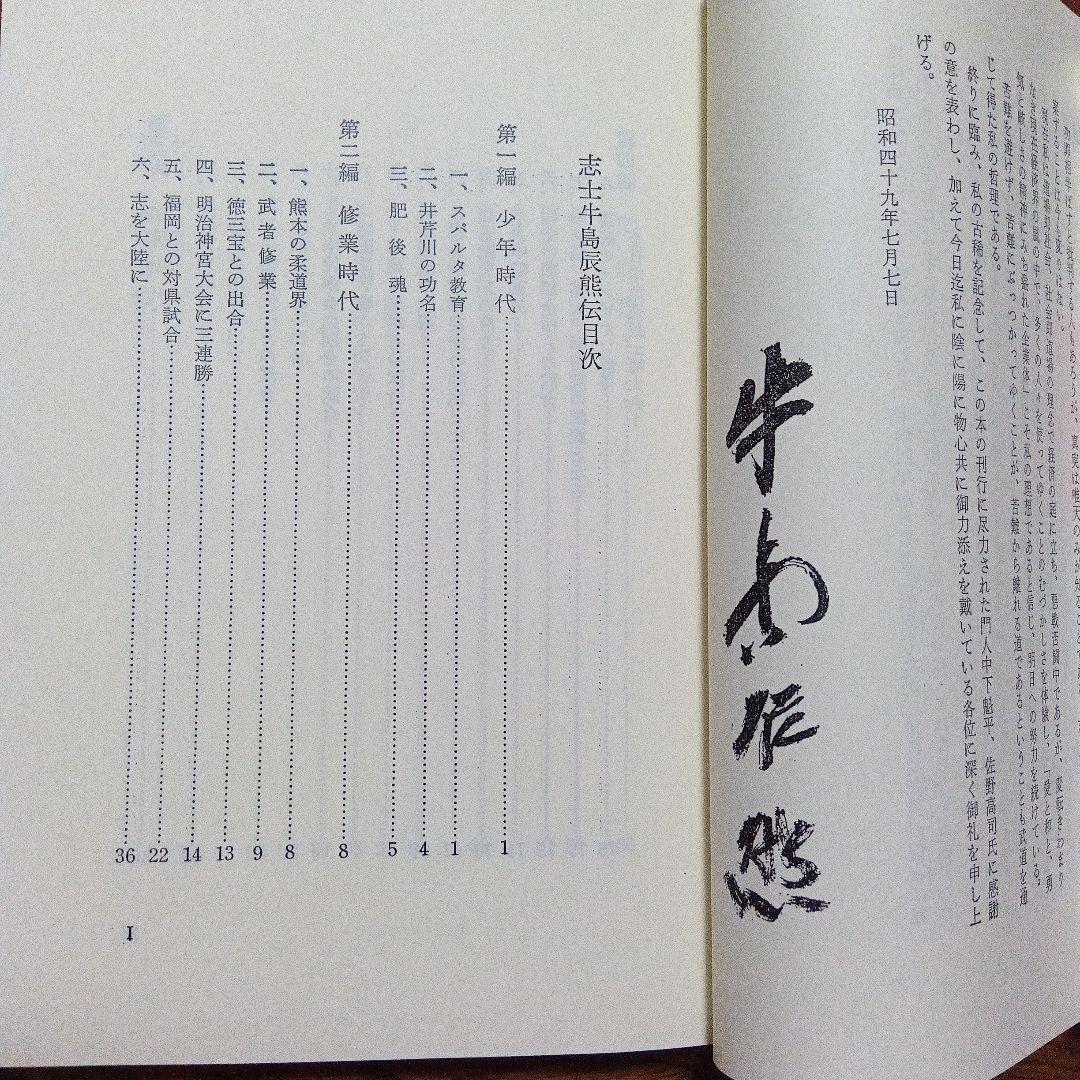 案ずることは今も変りはない。
現在私は道場即社会、社会即道場の理念で経済の庭に立ち、悪戦苦闘中であるが、変転きわまり
なき現在経済界の嵐の中で、多くの人々を使ってゆくことのむづかしさを体験し、「愛と和と、勇
気と厳しさの精神にみち溢れた企業体」こそ私の理想であると信じ、明日への努力を続けている。
苦難を避けず、苦難にぶっつかってゆくことが、苦難から離れる道であるということも武道を通
じて得た私の哲理である。
終りに臨み、私の古稀を記念して、この本の刊行に尽力された門人中下魁平、佐野高司氏に感謝
の意を表わし、加えて今日迄私に陰に陽に物心共に御力添えを戴いている各位に深く御礼を申し上
げる。
昭和四十九年七月七日
牛島辰熊
志士牛島辰熊伝目次
第一編 少年時代……1
一、スパルタ教育……1
二、井芹川の功名……4
三、肥後魂……5
第二編 修業時代……8
一、熊本の柔道界……8
二、武者修業……9
三、徳三宝との出合……13
四、明治神宮大会に三連勝……14
五、福岡との対県試合……22
六、志を大陸に……36
I